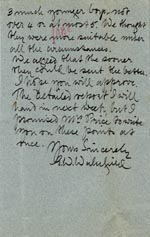 3 much younger boys - not
over 4 or at most 5. We thought
they were more suitable under
all the circumstances.
We agreed that the sooner
they could be sent the better.
I hope you will approve.
The detailed report I will
hand in next week, but I
promised Mr Price to write
you on these points at
once.
Yours Sincerely